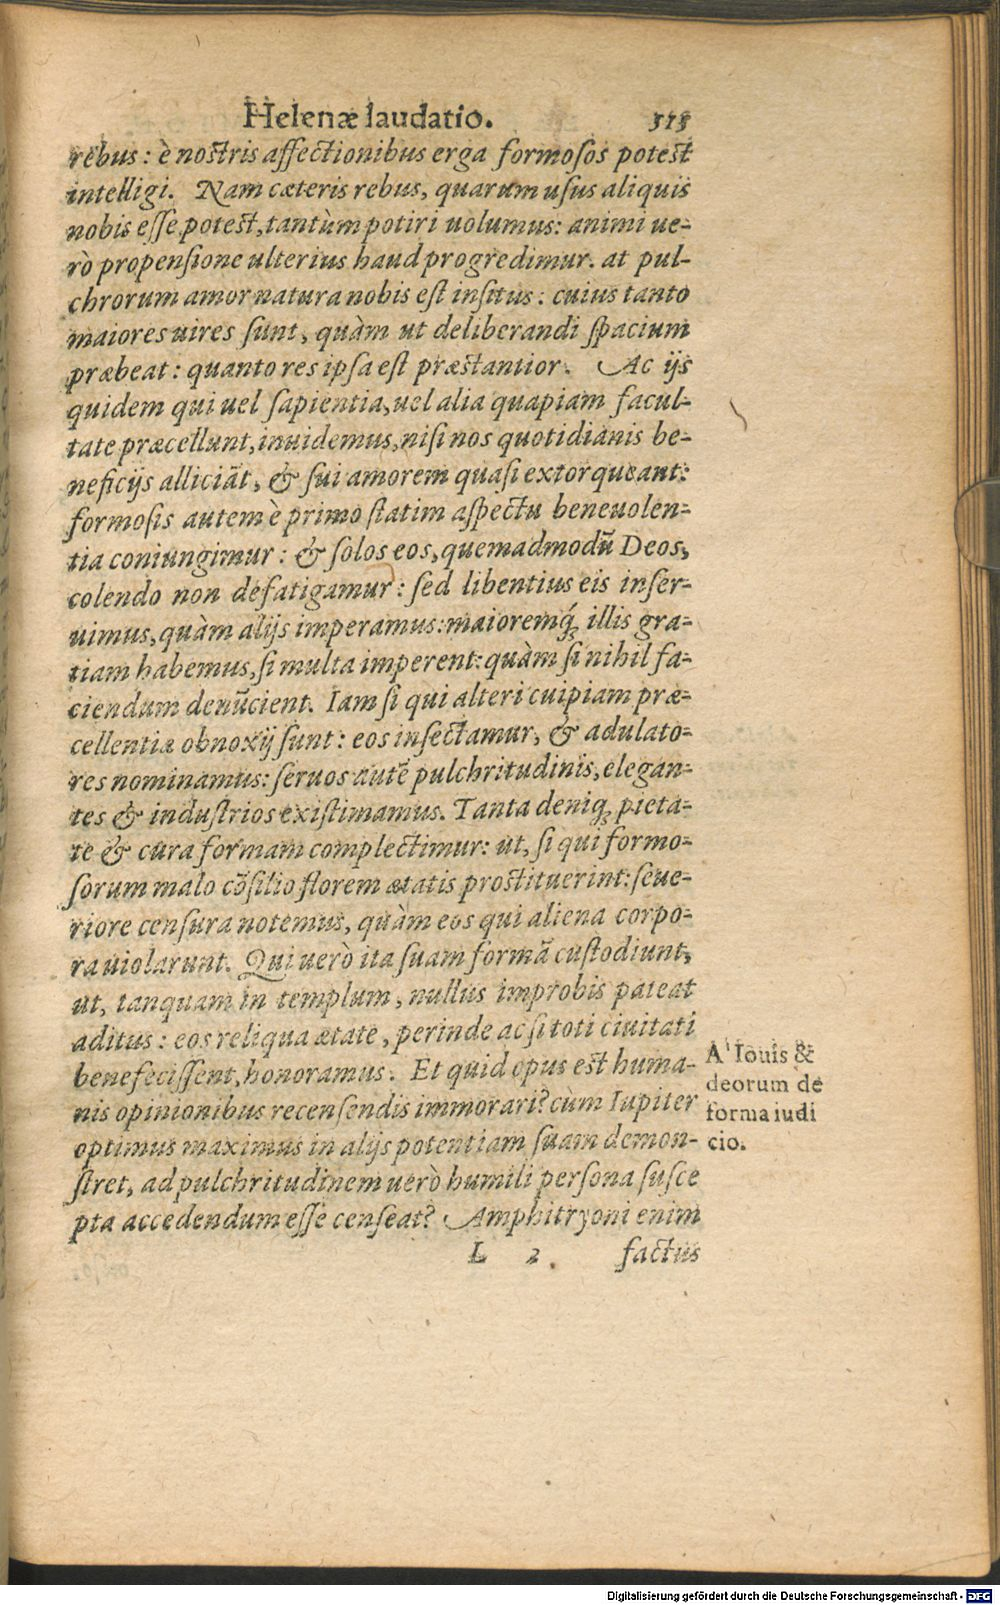 Helenæ laudatio. 513
rebus: è nostris affectionibus erga formosos potest
intelligi. Nam cæteris rebus, quarum usus aliquis
nobis esse potest, tantùm potiri uolumus: animi ue-
rò propensione ulterius haud progredimur. at pul-
chrorum amor natura nobis est insitus: cuius tanto
maiores uires sunt, quàm ut deliberandi spacium
præbeat: quanto res ipsa est præstantior. Ac ijs
quidem qui uel sapientia, uel alia quapiam facul-
tate præcellunt, inuidemus, nisi nos quotidianis be-
neficijs alliciāt, & sui amorem quasi extorqueant:
formosis autem è primo statim aspectu beneuolen-
tia coniungimur: & solos eos, quemadmodū Deos,
colendo non defatigamur: sed libentius eis inser-
uimus, quàm alijs imperamus: maioremq́; illis gra-
tiam habemus, si multa imperent: quàm si nihil fa-
ciendum denūcient. Iam si qui alteri cuipiam præ-
cellentiæ obnoxij sunt: eos insectamur, & adulato-
res nominamus: seruos autē pulchritudinis, elegan-
tes & industrios existimamus. Tanta deniq; pieta-
te & cura formam complectimur: ut, si qui formo-
sorum malo cōsilio florem ætatis prostituerint: seue-
riore censura notemus, quàm eos qui aliena corpo-
ra uiolarunt. Qui uerò ita suam formā custodiunt,
ut, tanquam in templum, nullus improbis pateat
aditus: eos reliqua ætate, perinde ac si toti ciuitati
benefecissent, honoramus. Et quid opus est huma-
nis opinionibus recensendis immorari? cùm Iupiter
optimus maximus in alijs potentiam suam demon-
stret, ad pulchritudinem uerò humili persona susce
pta accedendum esse censeat? Amphitryoni enim
L 2 factus
A' Iouis &
deorum de
forma iudi
cio.
Digitalisierung gefördert durch die Deutsche Forschungsgemeinschaft - DFG